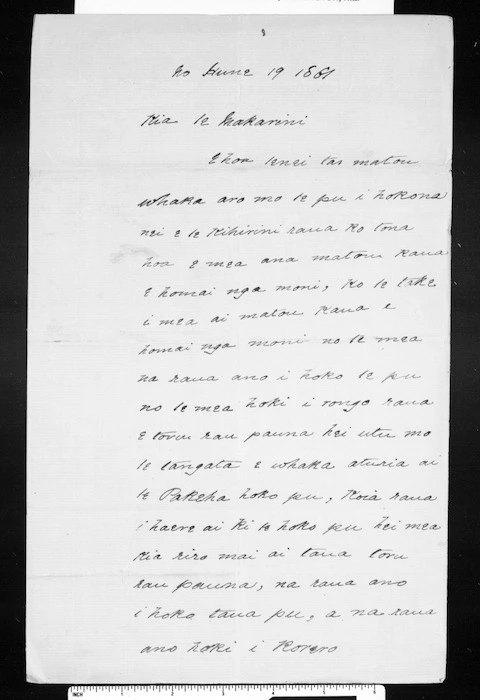 8
no Hune 19 1861
Kia te Makarini
E hoa tenei tar matou
whaka aro mo te pu i hokona
nei e te Kihirini raua ko tona
hoa e mea ana matou kaua
e homai nga moni, ko te take
i mea ai matou kaua e
homai nga moni no te mea
na raua ano i hoko te pu
no te mea hoki i rongo raua
e toru rau pauna hei utu mo
te tangata e whaka aturia ai
te Pakeha hoko pu, Koia raua
i haere ai ki te hoko pu hei mea
kia riro mai ai taua toru
rau pauna, na raua ano
i hoko taua pu, a na raua
ano hoki i korero